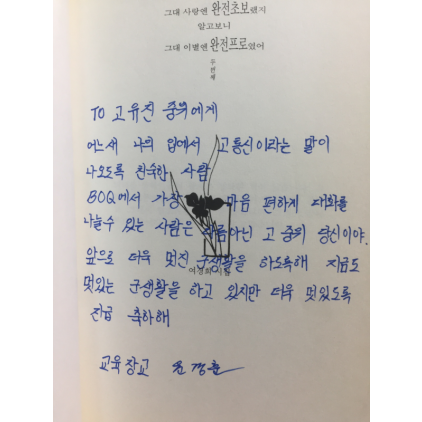 그대 사랑엔 완전초보랬지
알고보니
그대 이별엔 완전프로였어
두번째
TO 고유진 중위에게
어느새 나의 입에서 고통신이라는 말이
나오도록 친숙한 사람
BOQ에서 가장 마음 편하게 대화를
나눌수 있는 사람은 다름아닌 고 중위 당신이야.
앞으로 더욱 멋진 군생활을 하도록해 지금도
여경희 시집
멋있는 군생활을 하고 있지만 더욱 멋있도록
진급 축하해
교육장교